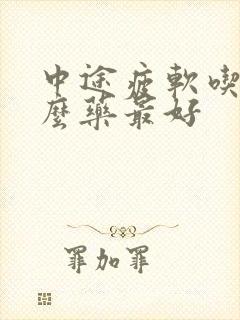 中途疲軟喫
麼藥最好
罪加罪